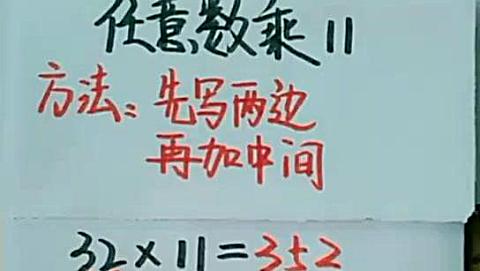 任意数乘11
方法:先写两边
再加中间
32×11=352